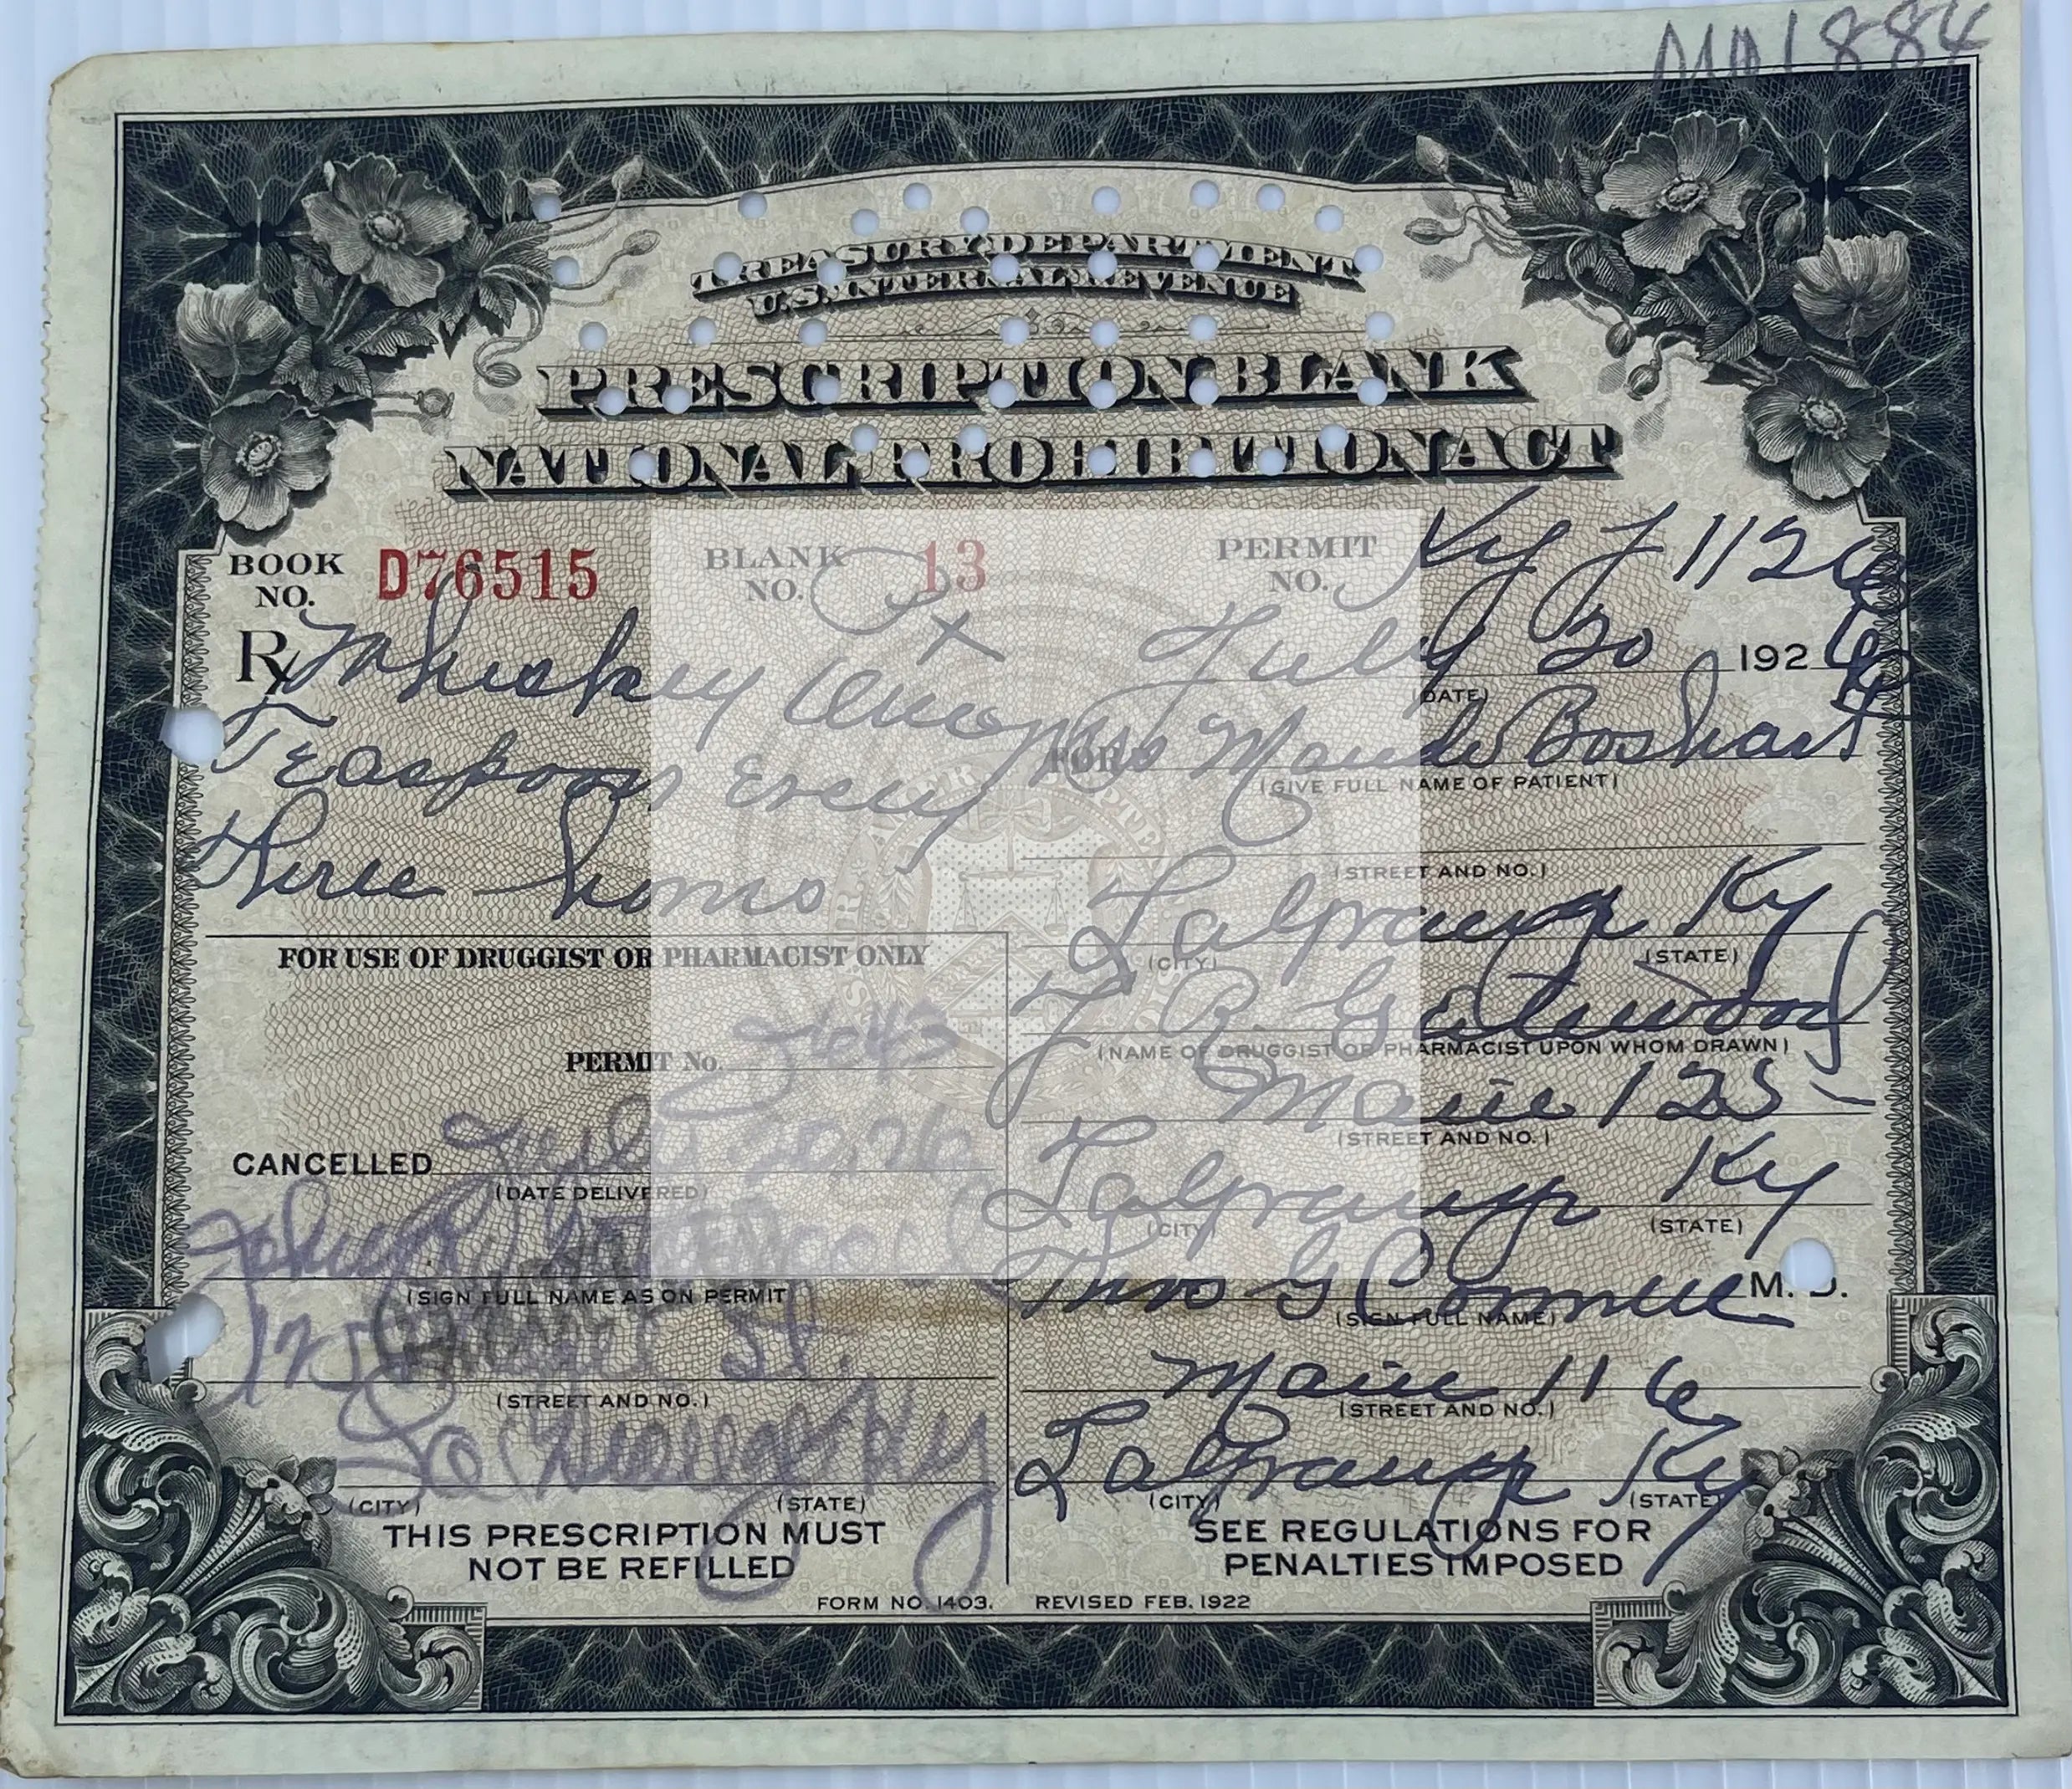 TREASURY DEPARTMENT
U.S. INTERNAL REVENUE
PRESCRIPTION BLANK
NATIONAL PROHIBITION ACT
BOOK NO. D76515 BLANK NO. 13 PERMIT NO. Ky J 1126
Rx Whiskey
Teaspoon Every
three
July 20 1926
(DATE)
FOR Maude Boshart
(GIVE FULL NAME OF PATIENT)
(STREET AND NO.)
LaGrange Ky
(CITY) (STATE)
J R Gatewood
(NAME OF DRUGGIST OR PHARMACIST UPON WHOM DRAWN)
Main 125
(STREET AND NO.)
LaGrange Ky
(CITY) (STATE)
Thos G Connell M. D.
(SIGN FULL NAME)
Main 116
(STREET AND NO.)
LaGrange Ky
(CITY) (STATE)
SEE REGULATIONS FOR
PENALTIES IMPOSED
FOR USE OF DRUGGIST OR PHARMACIST ONLY
PERMIT No.
CANCELLED July
(DATE DELIVERED)
(SIGN FULL NAME AS ON PERMIT
125 St.
(STREET AND NO.)
Ky
(CITY) (STATE)
THIS PRESCRIPTION MUST
NOT BE REFILLED
FORM NO. 1403. REVISED FEB. 1922